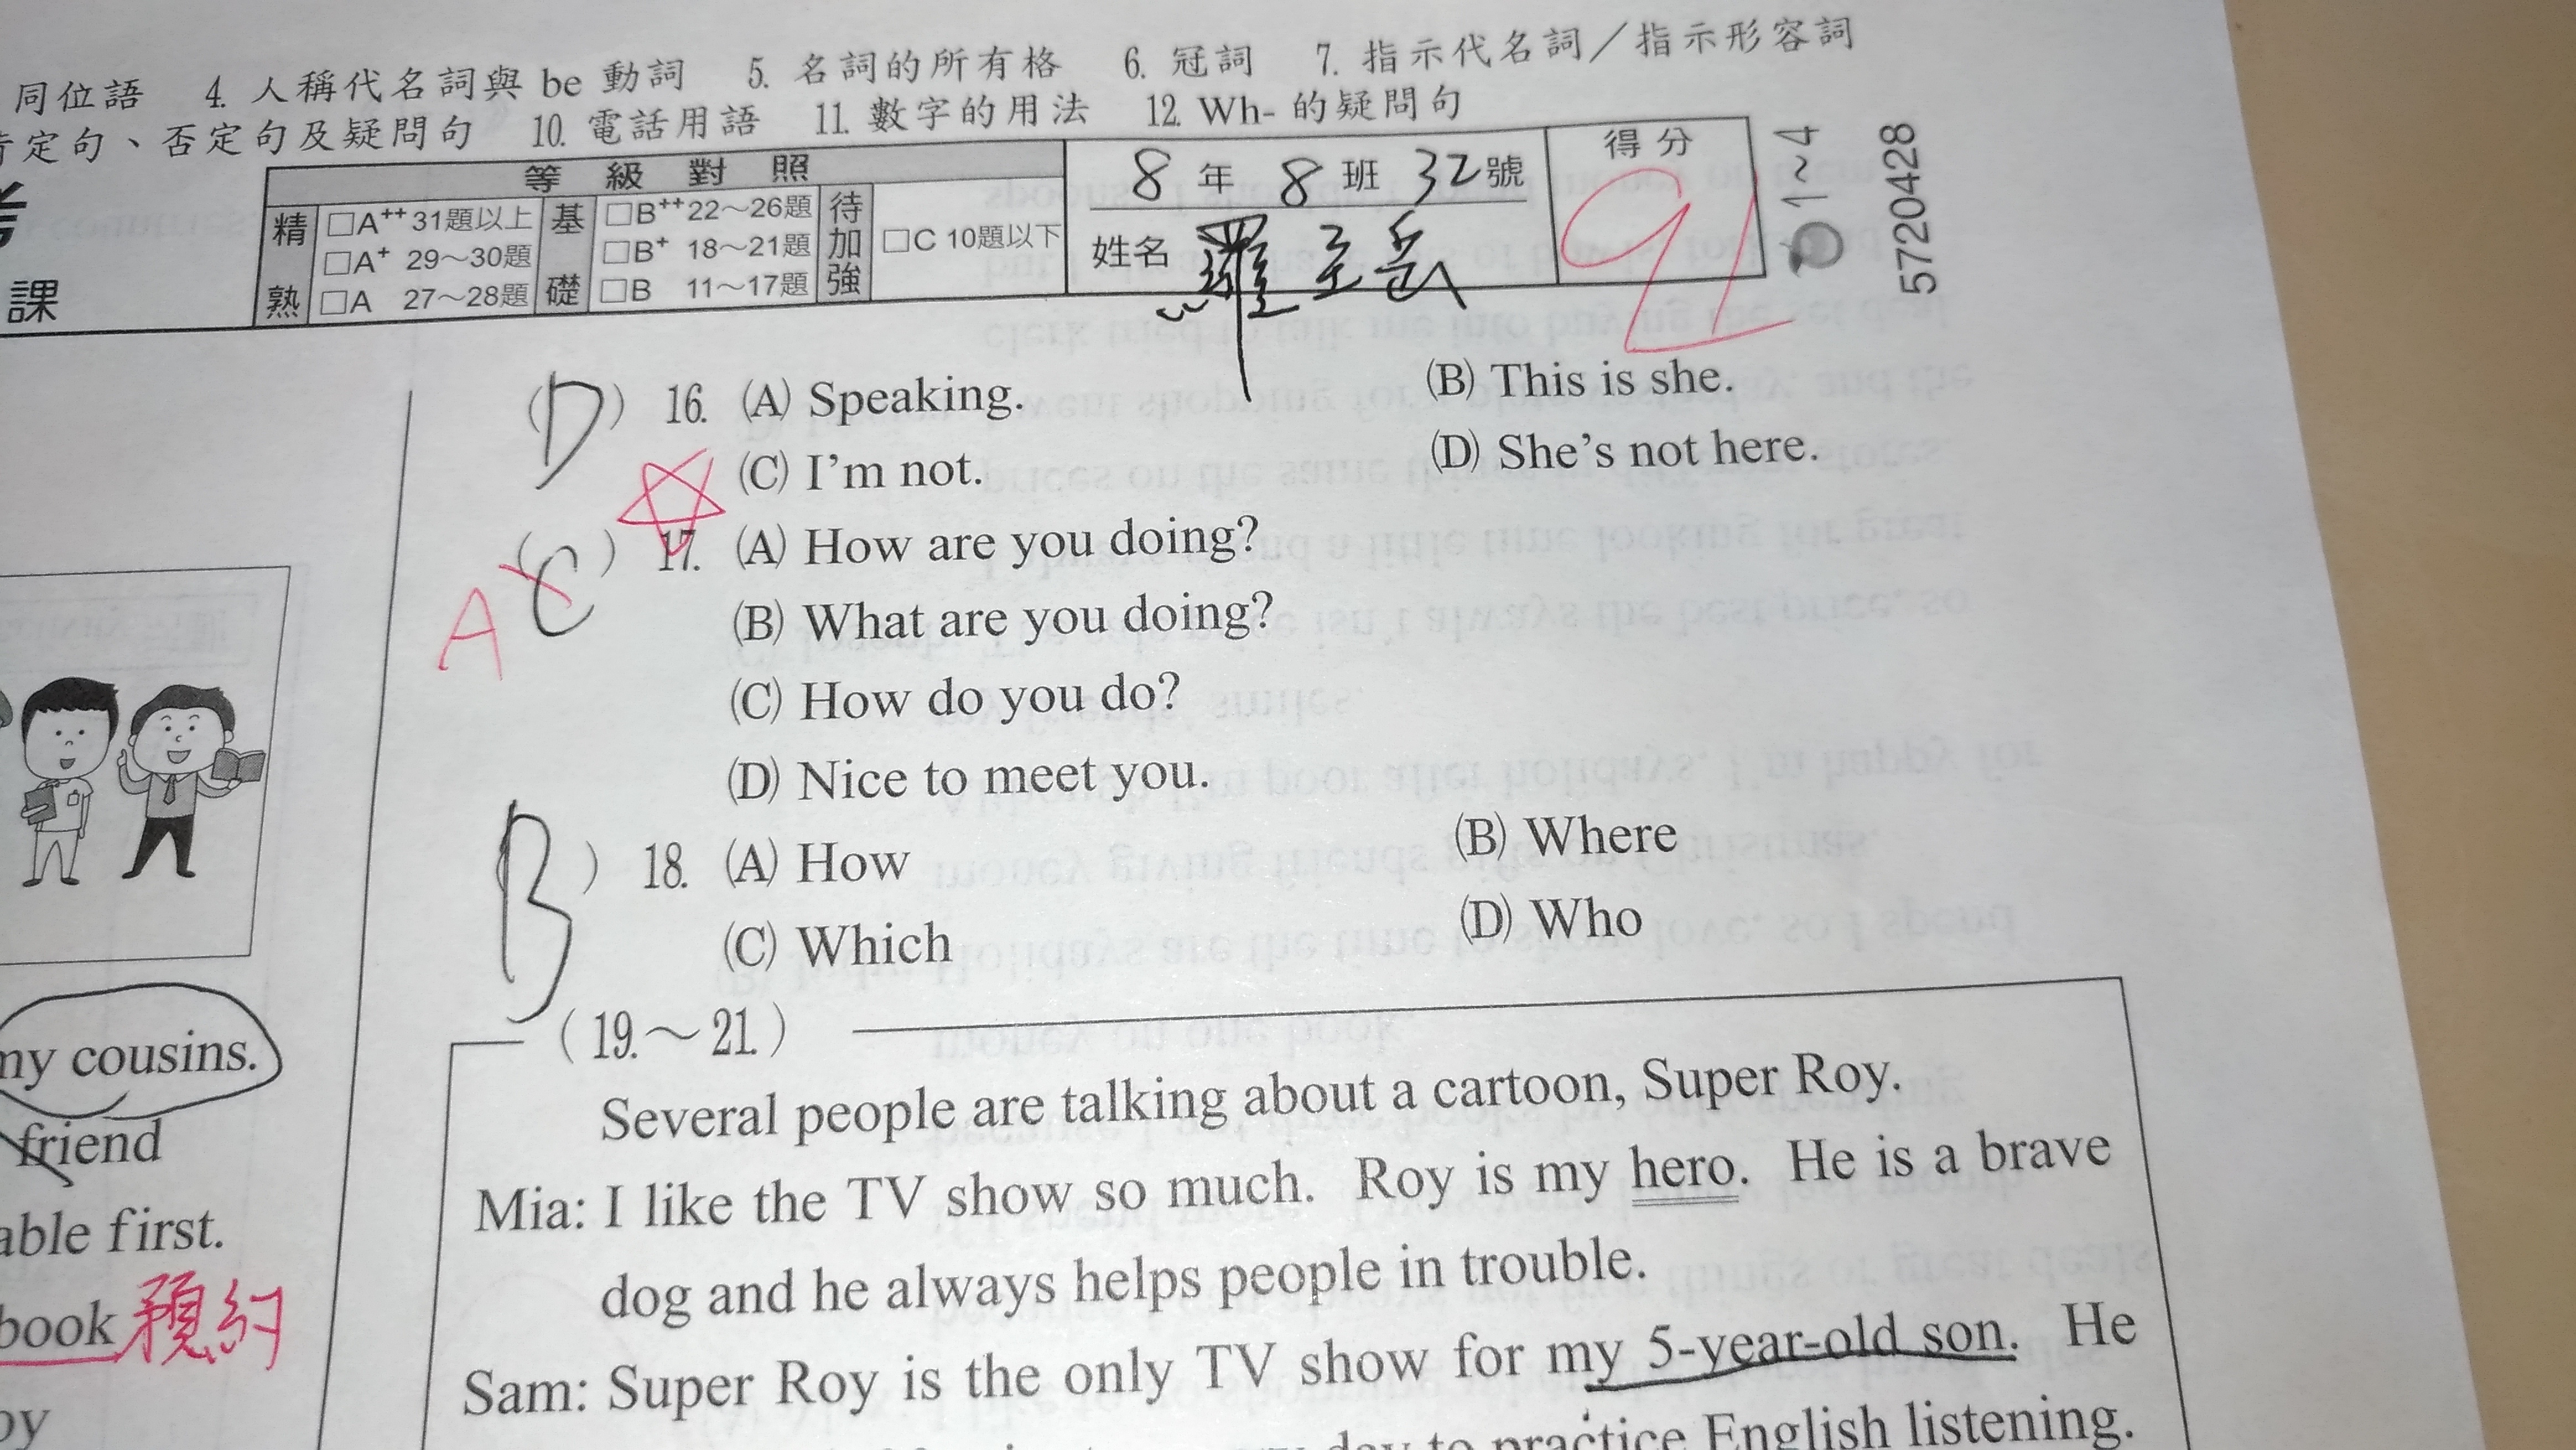 同位語 4. 人稱代名詞與 be 動詞 5. 名詞的所有格 6. 冠詞 7. 指示代名詞／指示形容詞
定句、否定句及疑問句 10. 電話用語 11. 數字的用法 12. Wh- 的疑問句
課
等級對照
精熟
□A++ 31題以上
□A+ 29～30題
□A 27～28題
基礎
□B++ 22～26題
□B+ 18～21題
□B 11～17題
待加強
□C 10題以下
8 年 8 班 32 號
姓名 羅
得分
91
1~4
5720428
(D) 16. (A) Speaking. (B) This is she.
(C) I'm not. (D) She's not here.
A (C) 17. (A) How are you doing?
(B) What are you doing?
(C) How do you do?
(D) Nice to meet you.
(B) 18. (A) How (B) Where
(C) Which (D) Who
my cousins.
friend
able first.
book 預約
oy
(19.～21.)
Several people are talking about a cartoon, Super Roy.
Mia: I like the TV show so much. Roy is my hero. He is a brave
dog and he always helps people in trouble.
Sam: Super Roy is the only TV show for my 5-year-old son. He
day to practice English listening.